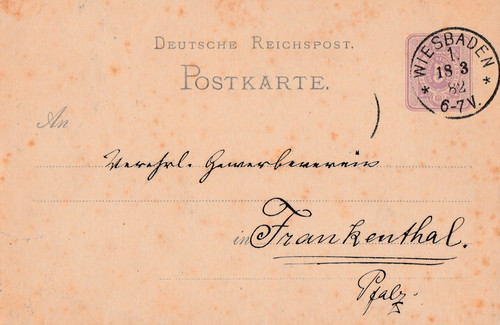 DEUTSCHE REICHSPOST.
POSTKARTE.
WIESBADEN
1.
18 3
82
6-7V.
An
Verehrl. Gewerbeverein
in Frankenthal.
Pfalz